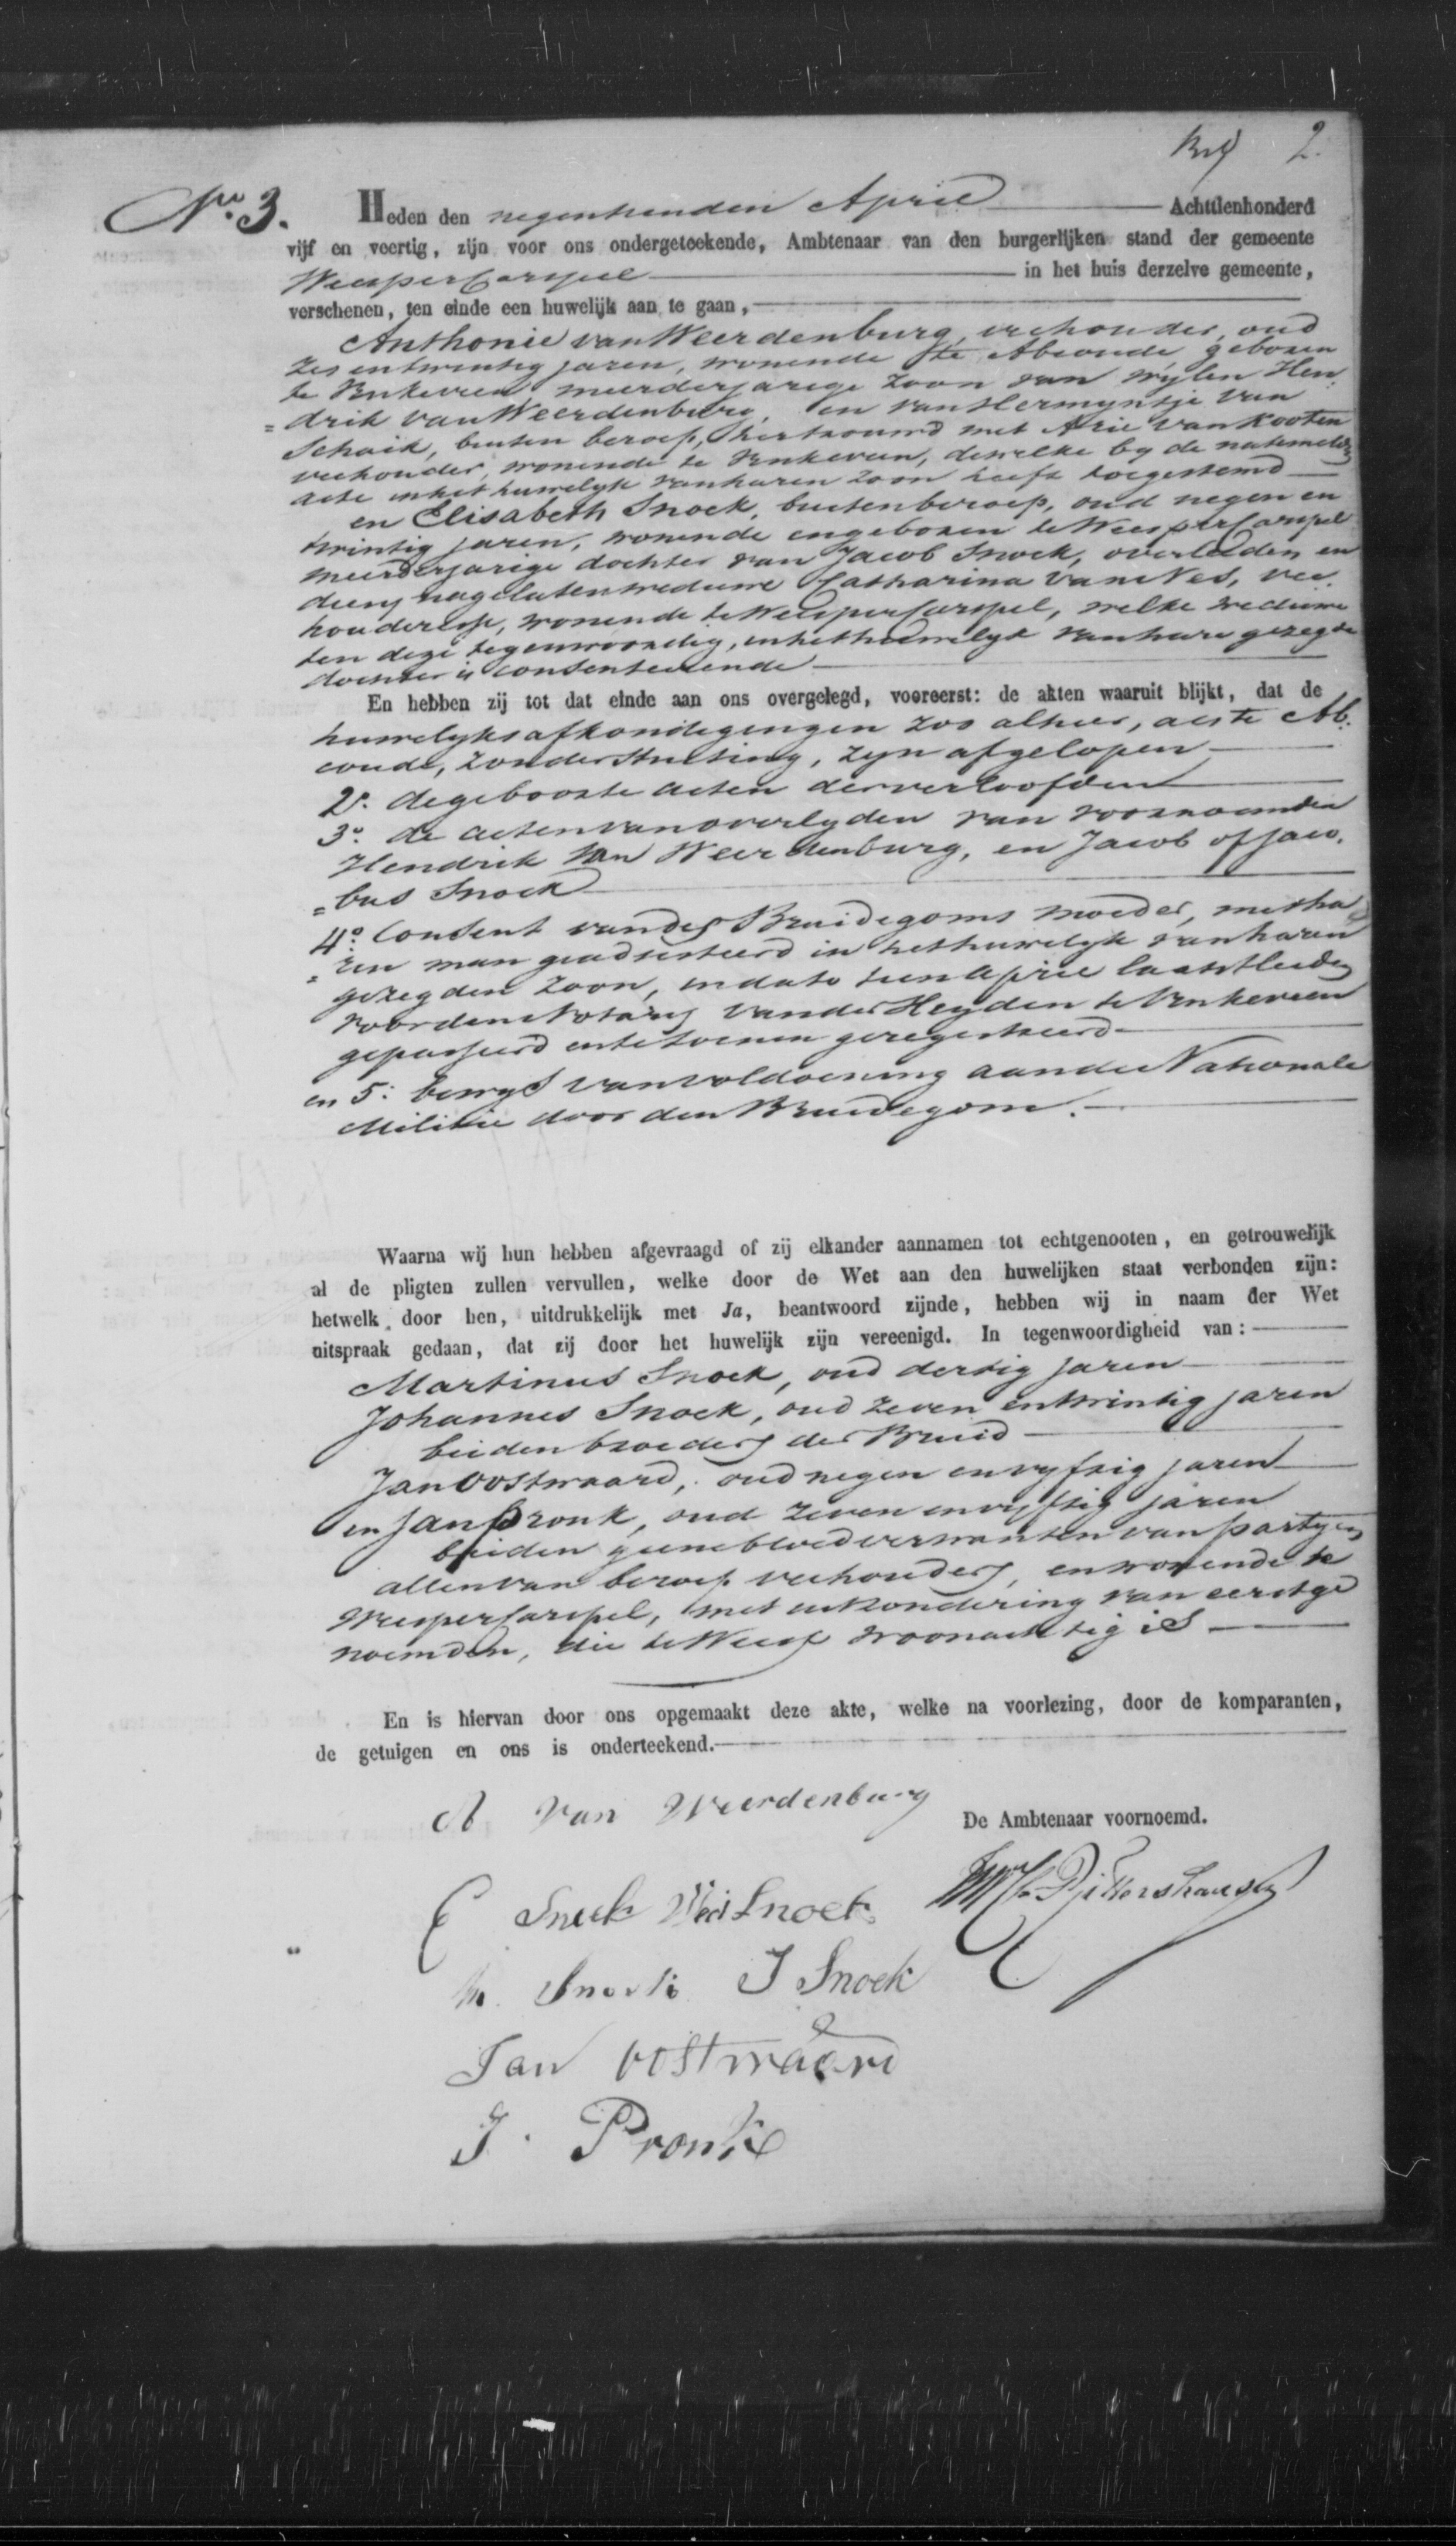 2.
No. 3.
Heden den negentienden April Achttienhonderd
vijf en veertig, zijn voor ons ondergeteekende, Ambtenaar van den burgerlijken stand der gemeente
Weespercarspel in het huis derzelve gemeente,
verschenen, ten einde een huwelijk aan te gaan,
Anthonie van Weerdenburg, veehouder, oud
zes en twintig jaren, wonende te Abcoude, geboren
te Vinkeveen meerderjarige zoon van wijlen Hen
= drik van Weerdenburg, en van Hermyntje van
Schaik, buiten beroep, hertrouwd met Arie van Kooten
veehouder, wonende te Vinkeveen, dewelke by de natemelden
acte in het huwelyk van haren zoon heeft toegestemd
en Elisabeth Snoek, buiten beroep, oud negen en
twintig jaren, wonende en geboren te Weespercarspel
meerderjarige dochter van Jacob Snoek, overleden en
diens nagelaten weduwe Catharina van Nes, vee.
houdersse, wonende te Weespercarspel, welke weduwe
ten deze tegenwoordig, in het huwelyk van hare gezegde
dochter is consenteerende
En hebben zij tot dat einde aan ons overgelegd, vooreerst: de akten waaruit blijkt, dat de
huwelyksafkondigingen zoo alhier, als te Ab.
coude, zonder stuiting, zyn afgelopen
2o. de geboorte acten der verloofden
3o. de acten van overlyden van voornoemden
Hendrik van Weerdenburg, en Jacob of Jaco.
= bus Snoek
4o. Consent van des Bruidegoms moeder, met ha
= ren man geadsisteerd in het huwelyk van haren
gezegden zoon, in dato tien April laatstleden
voor den Notaris van der Heyden te Vinkeveen
gepasseerd en te Loenen geregistreerd
en 5o. bewys van voldoening aan de Nationale
Militie door den Bruidegom.
Waarna wij hun hebben afgevraagd of zij elkander aannamen tot echtgenooten, en getrouwelijk
al de pligten zullen vervullen, welke door de Wet aan den huwelijken staat verbonden zijn:
hetwelk door hen, uitdrukkelijk met Ja, beantwoord zijnde, hebben wij in naam der Wet
uitspraak gedaan, dat zij door het huwelijk zijn vereenigd. In tegenwoordigheid van:
Martinus Snoek, oud dertig jaren
Johannes Snoek, oud zeven en twintig jaren
beiden broeders der Bruid
Jan Oostwaard, oud negen en vyftig jaren
en Jan Pronk, oud zeven en vyftig jaren
beiden geene bloedverwanten van partyen
allen van beroep veehouders, en wonende te
Weespercarspel, met uitzondering van eerstge
noemden, die te Weesp woonachtig is
En is hiervan door ons opgemaakt deze akte, welke na voorlezing, door de komparanten,
de getuigen en ons is onderteekend.
A van Weerdenburg
De Ambtenaar voornoemd.
E Snoek Wed Snoek
M. Snoek J Snoek
Jan Oostwaard
J. Pronk